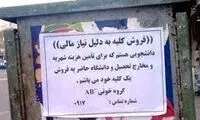 ((فروش کلیه به دلیل نیاز مالی))
دانشجویی هستم که برای تامین هزینه شهریه
و مخارج تحصیل و دانشگاه حاضر به فروش
یک کلیه خود می باشم .
گروه خونی AB+
شماره تماس : ۰۹۱۷